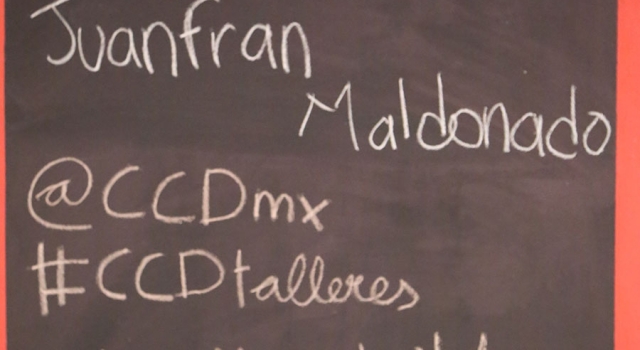 Juanfran
Maldonado
@CCDmx
#CCDtalleres